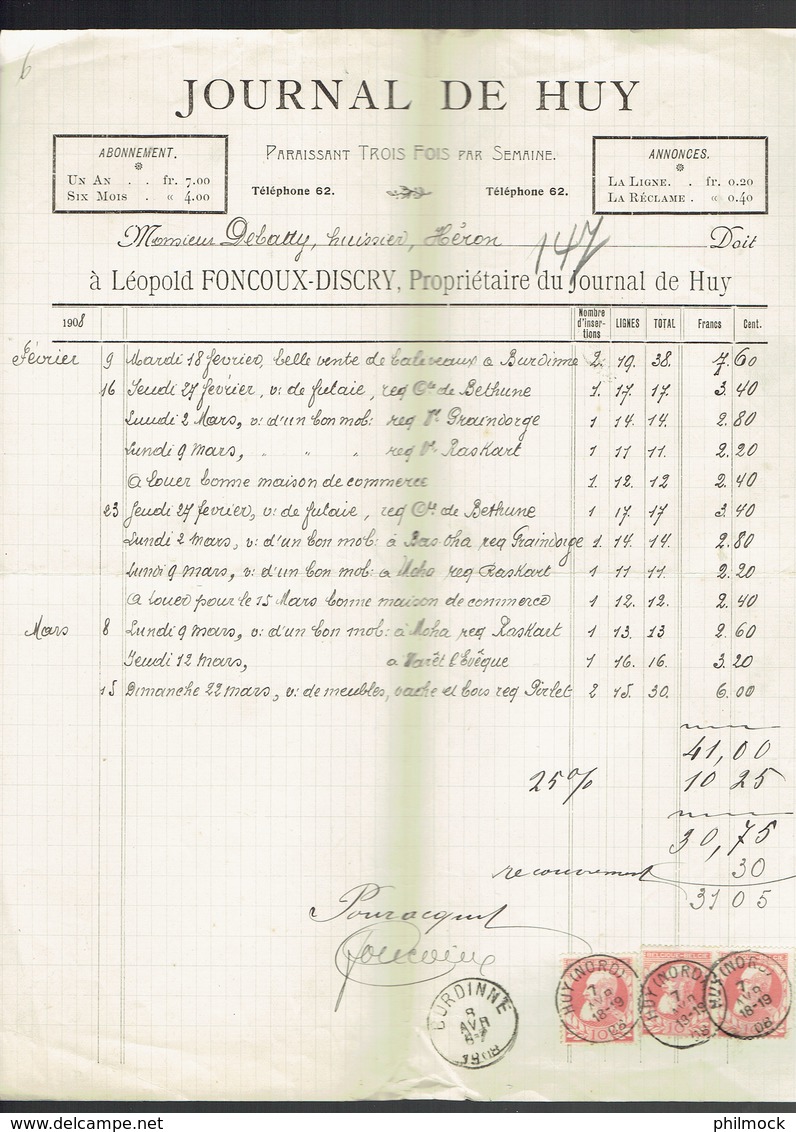 6
JOURNAL DE HUY
Paraissant Trois Fois par Semaine.
ABONNEMENT.
Un An . . fr. 7.00
Six Mois . « 4.00
ANNONCES.
La Ligne . fr. 0.20
La Réclame . « 0.40
Téléphone 62. Téléphone 62.
Monsieur Debatty, huissier, Héron 147 Doit
à Léopold FONCOUX-DISCRY, Propriétaire du Journal de Huy
1908 Nombre d'insertions LIGNES TOTAL Francs Cent.
Février 9 Mardi 18 fevrier, belle vente de baliveaux a Burdinne 2. 19. 38. 7. 60
16 Jeudi 27 fevrier, v: de futaie, req Cte de Bethune 1. 17. 17. 3. 40
Lundi 2 Mars, v: d'un bon mob: req Ve Graindorge 1 14. 14. 2. 80
Lundi 9 mars, " " " req Ve Raskart 1 11 11. 2. 20
A louer bonne maison de commerce 1. 12. 12 2. 40
23 Jeudi 27 fevrier, v: de futaie, req Cte de Bethune 1 17. 17 3. 40
Lundi 2 mars, v: d'un bon mob: à Bas-oha req Graindorge 1. 14. 14. 2. 80
Lundi 9 mars, v: d'un bon mob: a Moha req Raskart 1 11 11. 2. 20
A louer pour le 15 Mars bonne maison de commerce 1 12. 12. 2. 40
Mars 8 Lundi 9 mars, v: d'un bon mob: à Moha req Raskart 1 13. 13 2. 60
Jeudi 12 mars, a Warêt l'Evêque 1 16. 16. 3. 20
15 Dimanche 22 mars, v: de meubles, vache et bois req Pirlet 2 15. 30. 6. 00
41,00
25% 10 25
30,75
recouvrement 30
31 05
Pour acquit
Foncoux
BURDINNE 8 AVR 6-7 1908
HUY (NORD) 7 AVR 18-19 08
HUY (NORD) 7 AVR 18-19 08
HUY (NORD) 7 AVR 18-19 08
philmock